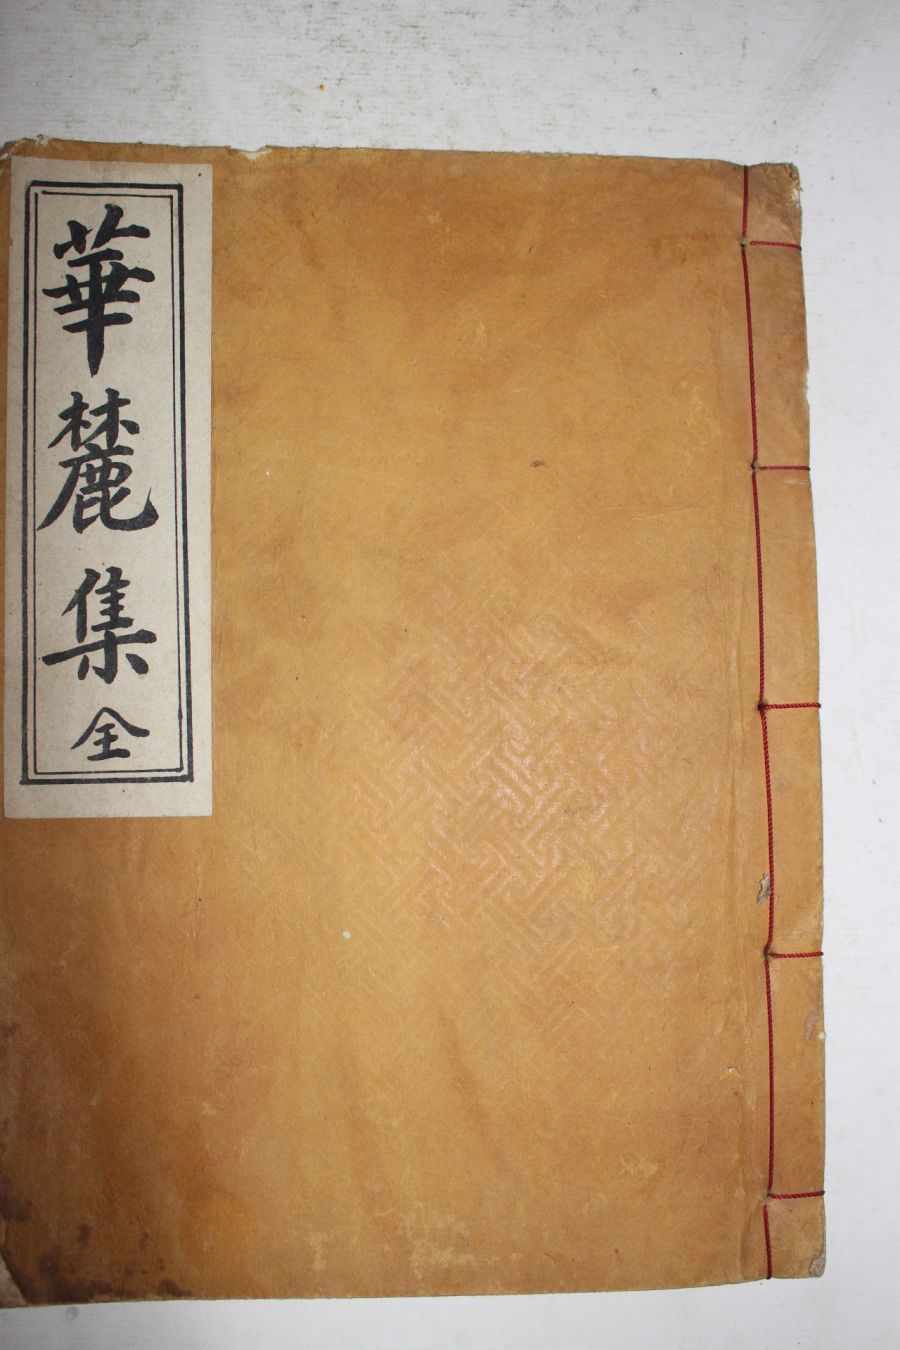 華麓集全